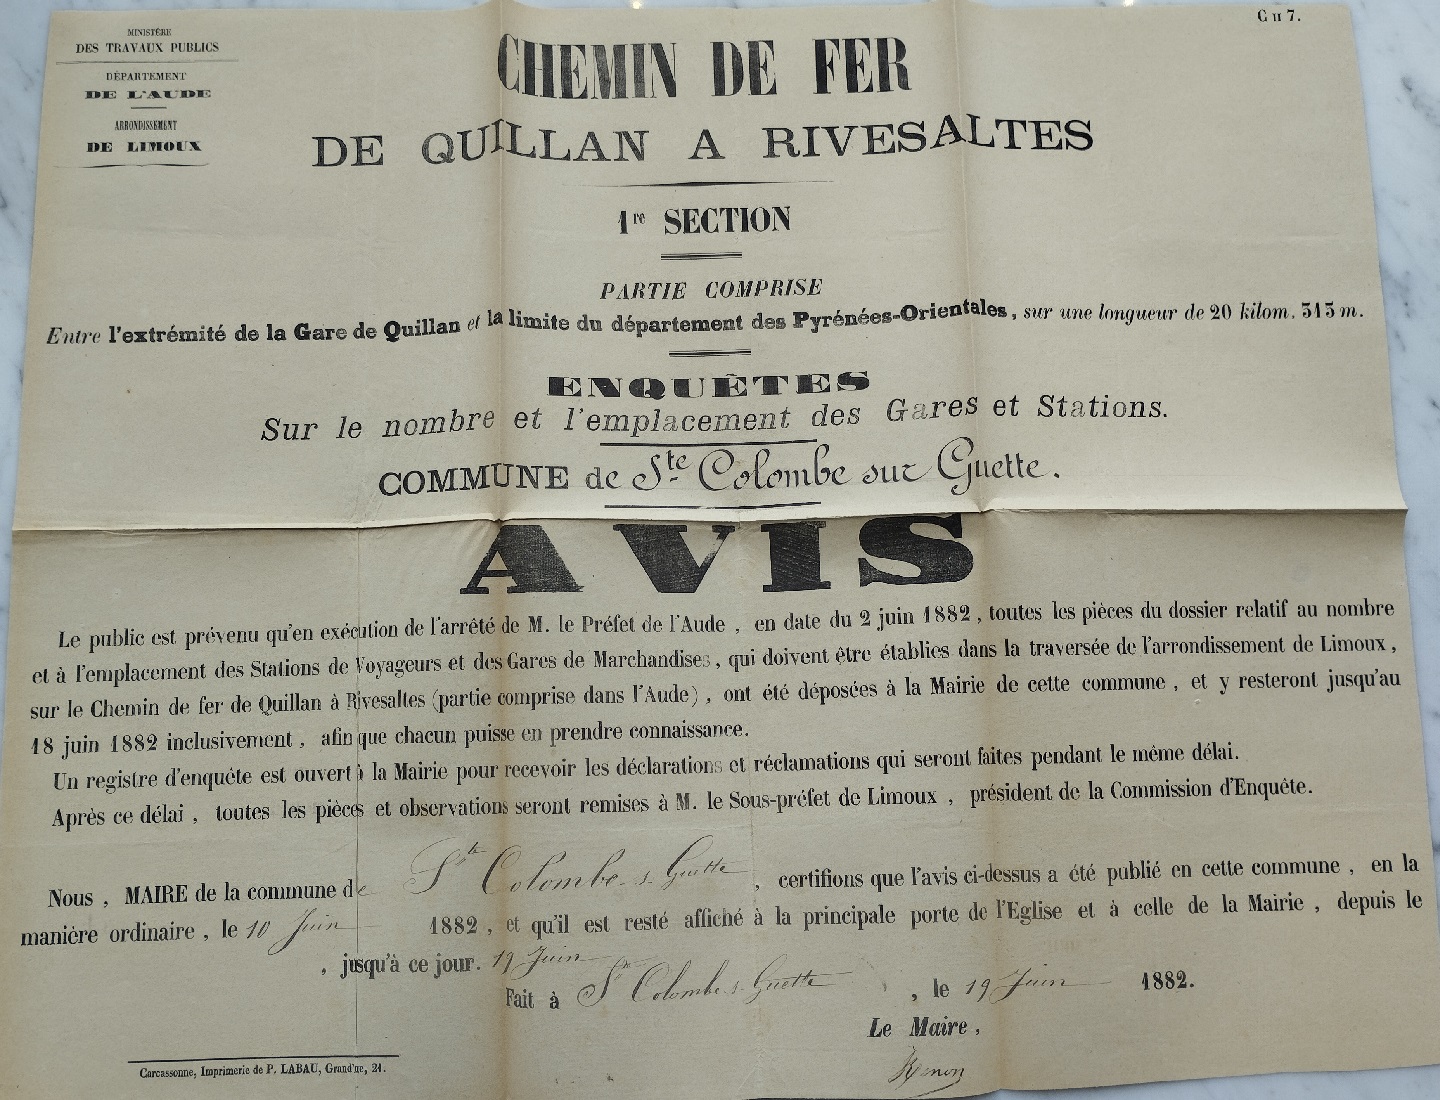 C n 7.
MINISTÈRE
DES TRAVAUX PUBLICS
DÉPARTEMENT
DE L'AUDE
ARRONDISSEMENT
DE LIMOUX
CHEMIN DE FER
DE QUILLAN A RIVESALTES
1re SECTION
PARTIE COMPRISE
Entre l'extrémité de la Gare de Quillan et la limite du département des Pyrénées-Orientales, sur une longueur de 20 kilom. 313 m.
ENQUÊTES
Sur le nombre et l'emplacement des Gares et Stations.
COMMUNE de Ste Colombe sur Guette.
AVIS
Le public est prévenu qu'en exécution de l'arrêté de M. le Préfet de l'Aude, en date du 2 juin 1882, toutes les pièces du dossier relatif au nombre
et à l'emplacement des Stations de Voyageurs et des Gares de Marchandises, qui doivent être établies dans la traversée de l'arrondissement de Limoux,
sur le Chemin de fer de Quillan à Rivesaltes (partie comprise dans l'Aude), ont été déposées à la Mairie de cette commune, et y resteront jusqu'au
18 juin 1882 inclusivement, afin que chacun puisse en prendre connaissance.
Un registre d'enquête est ouvert à la Mairie pour recevoir les déclarations et réclamations qui seront faites pendant le même délai.
Après ce délai, toutes les pièces et observations seront remises à M. le Sous-préfet de Limoux, président de la Commission d'Enquête.
Nous, MAIRE de la commune de Ste Colombe s. Guette, certifions que l'avis ci-dessus a été publié en cette commune, en la
manière ordinaire, le 10 Juin 1882, et qu'il est resté affiché à la principale porte de l'Eglise et à celle de la Mairie, depuis le
, jusqu'à ce jour. 19 Juin
Fait à Ste Colombe s. Guette, le 19 Juin 1882.
Le Maire,
Carcassonne, Imprimerie de P. LABAU, Grand'rue, 21.